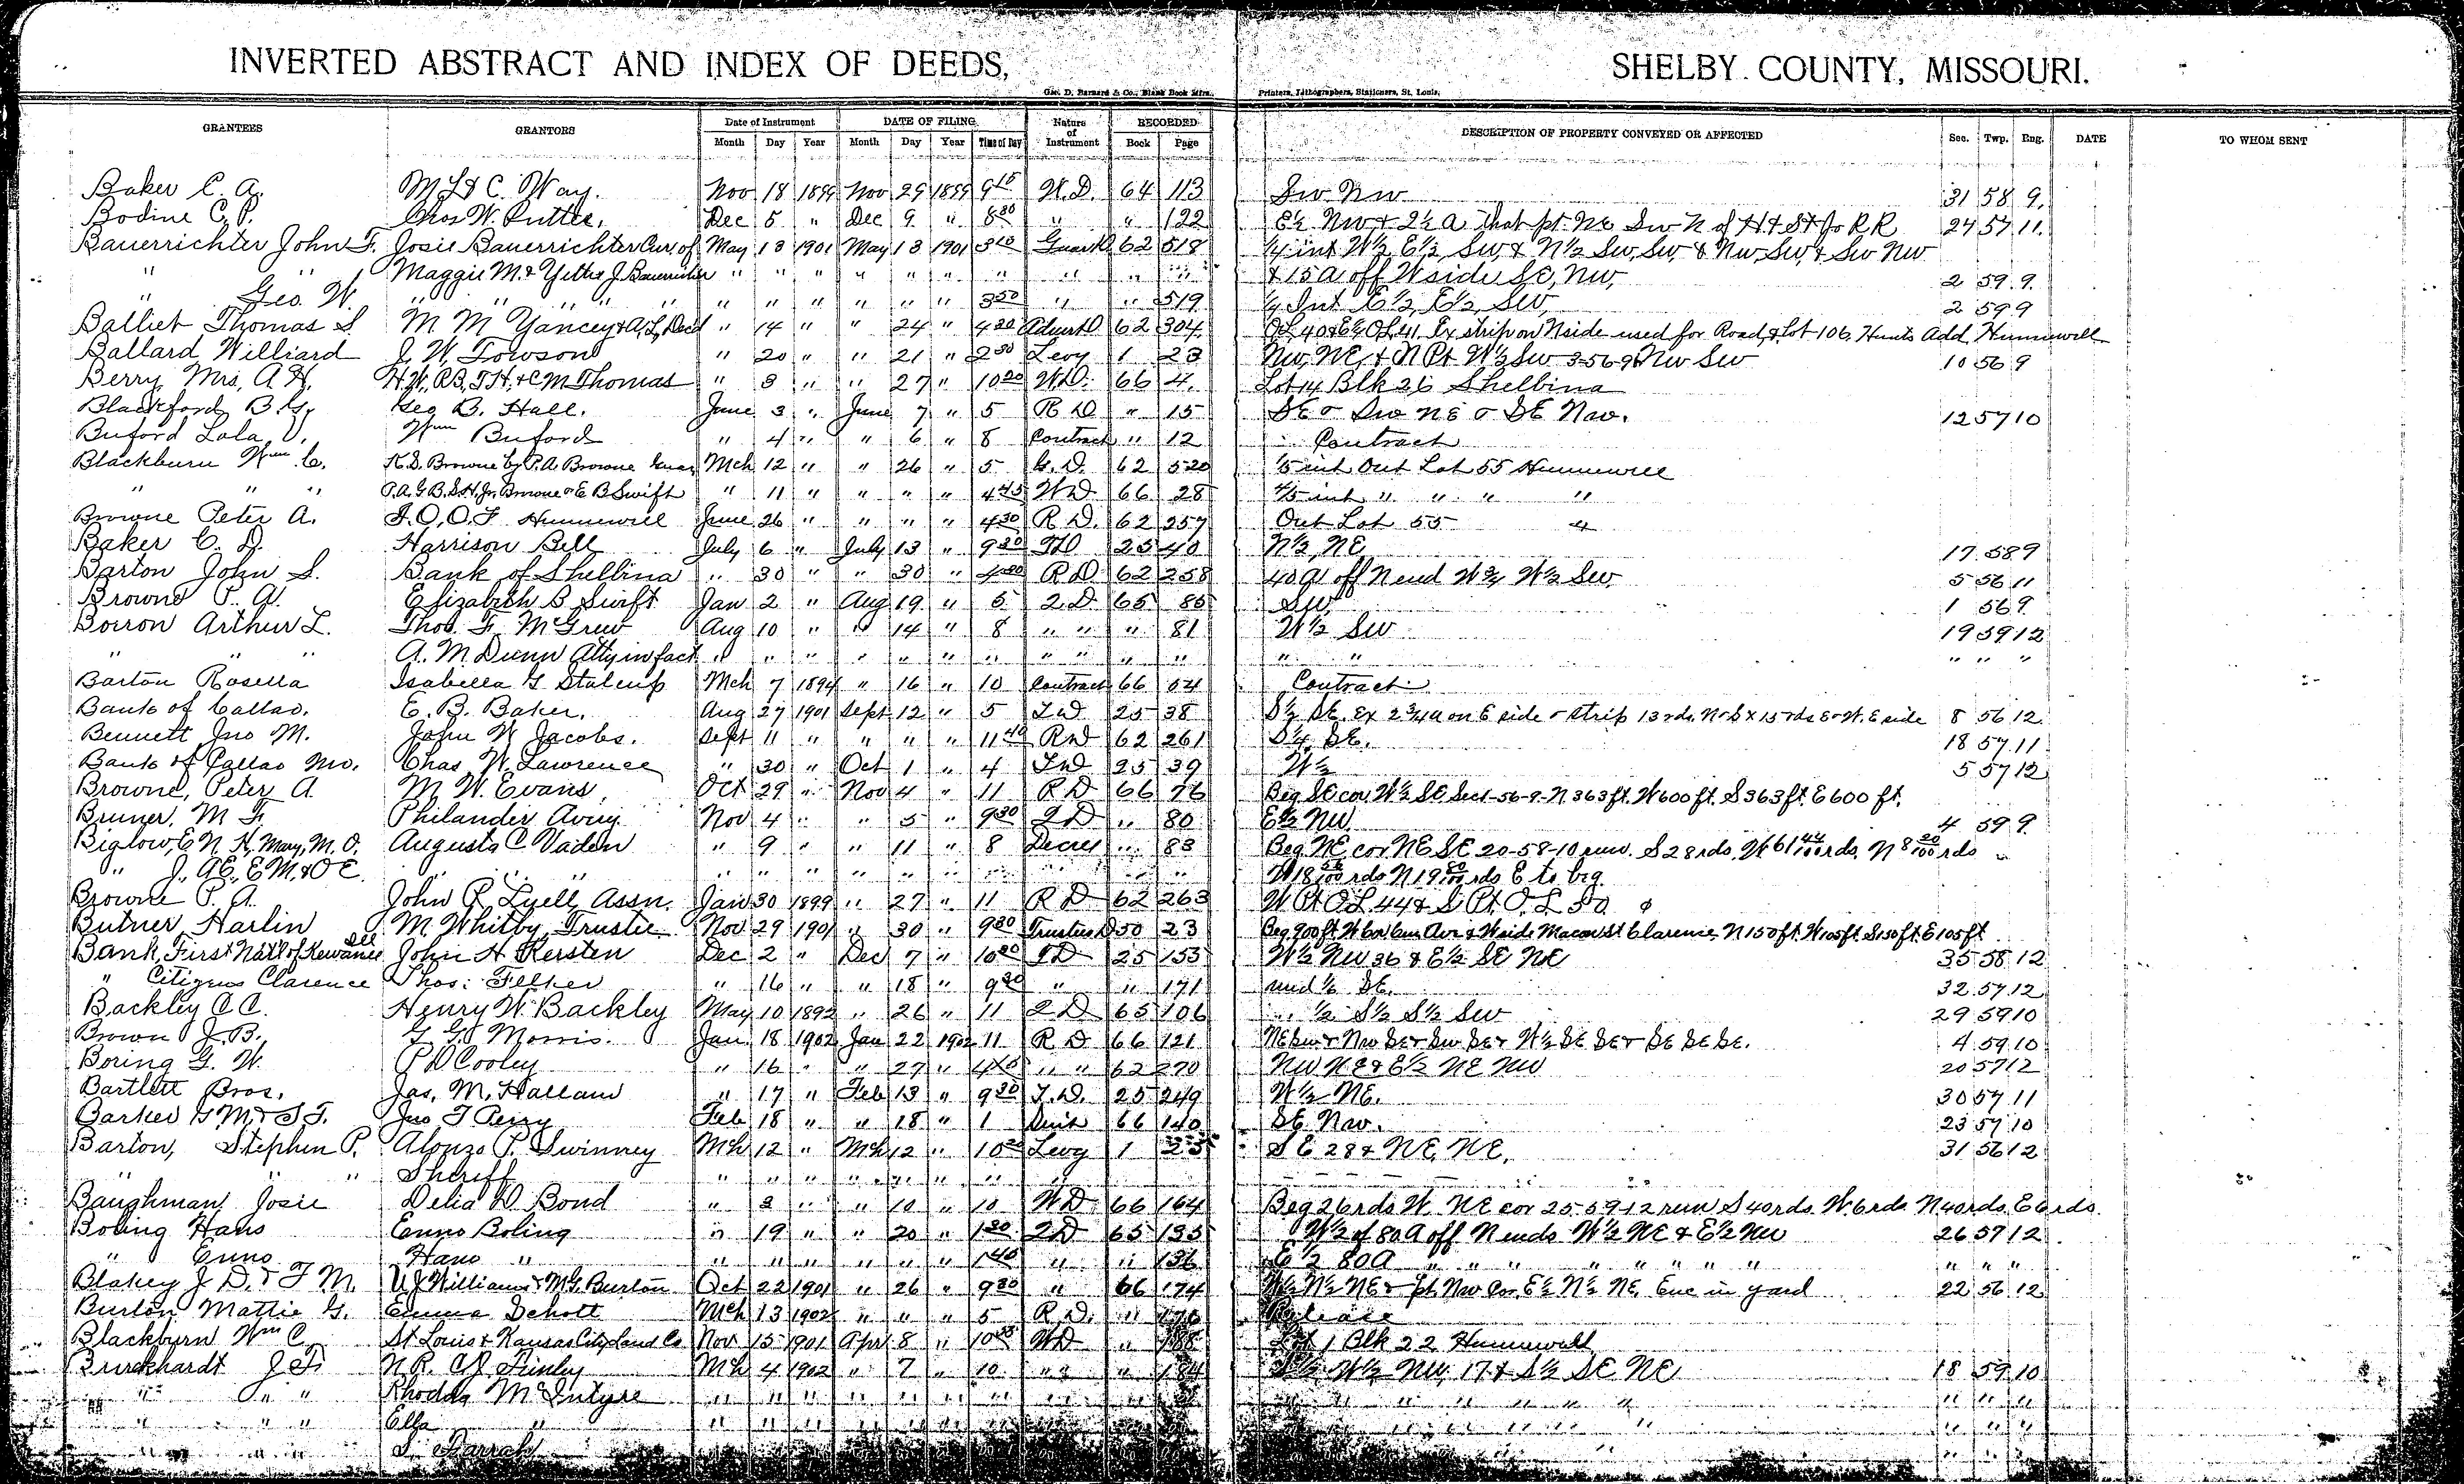 INVERTED ABSTRACT AND INDEX OF DEEDS, SHELBY COUNTY, MISSOURI.
Geo. D. Barnard & Co., Blank Book Mfrs., Printers, Lithographers, Stationers, St. Louis.
GRANTEES GRANTORS Date of Instrument DATE OF FILING Nature of Instrument RECORDED DESCRIPTION OF PROPERTY CONVEYED OR AFFECTED Sec. Twp. Rng. DATE TO WHOM SENT
Month Day Year Month Day Year Time of Day Book Page
Baker C. A. M L & C. Way. Nov 18 1899 Nov 29 1899 9 15 W.D. 64 113 Sw Nw 31 58 9.
Bodine C. P. Chas W. Dec 5 " Dec 9 " 8 30 " " 122 E½ Nw & 2½ a that pt. Ne Sw N of H & St Jo RR 24 57 11.
Bauerrichter John F. Josie Bauerrichter Cur. of May 13 1901 May 13 1901 3 10 62 518 ¼ int W½ E½ Sw, & N½ Sw, Sw, & Nw, Sw, & Sw Nw
" " Maggie M. & J. Bauerrichter " " " " " " " " " " & 15 a off W side SE, Nw, 2 59 9.
" Geo. W. " " " " " " " " " " " 3 50 " " 519 ¼ Int E½, E½, Sw, 2 59 9
Balliet Thomas S M M Yancey & A. L, Decd " 14 " " 24 " 4 20 62 304 OL 40 & E½ OL 41 Ex strip on N side used for Road, & Lot 106, Hunts Add, Hunnewell
Ballard Williard J. W. Towson " 20 " " 21 " 2 30 Levy 1 23 Nw, NE, & N Pt W½ Sw 3-56-9 & Nw Sw 10 56 9
Berry Mrs, A H. H. W., R B, T H. & C M Thomas " 3 " " 27 " 10 20 W.D. 66 4. Lot 14 Blk 26 Shelbina
Blackford B. G. Geo B. Hall. June 3 " June 7 " 5 R D " 15 SE & Sw NE & SE Nw. 12 57 10
Buford Lala V. Wm Buford " 4 " " 6 " 8 Contract " 12 Contract
Blackburn Wm C. K. S. Browne by P. A Browne Mch 12 " " 26 " 5 G. D. 62 520 1/5 int Out Lot 55 Hunnewell
" " " P. A. G B. S. H. Jr. Browne & E B Swift " 11 " " " " 4 45 W D 66 28 4/5 int " " " "
Browne Peter A. I. O. O. F Hunnewell June 26 " " " " 4 30 R D. 62 257 Out Lot 55 "
Baker C. D. Harrison Bell July 6 " July 13 " 9 30 TD 25 40 N½, NE 17 58 9
Barton John S. Bank of Shelbina " 30 " " 30 " R D 62 258 40 a off N end W¾ W½ Sw. 5 56 11
Browne P. A. Elizabeth B Swift Jan 2 " Aug 19 " 5 2. D 65 85 Sw. 1 56 9
Boiron Arthur L. Thos. F. McGrew Aug 10 " " 14 " 8 " " " 81 W½ Sw 19 59 12
" " " A. M. Dunn Atty in fact " " " " " " " " " " " " " " " " "
Barton Rosella Isabella G Stalcup Mch 7 1894 " 16 " 10 Contract 66 54 Contract
Bank of Callao. E. B. Baker. Aug 27 1901 Sept 12 " 5 T D 25 38 S½ SE. Ex 2¾ a on E side & strip 13 rds. N & S x 15 rds E & W. E side 8 56 12
Bennett Jno M. John W Jacobs. Sept 11 " " " " 11 40 R D 62 261 S½ SE. 18 57 11
Bank of Callao Mo. Chas W. Lawrence " 30 " Oct 1 " 4 T D 25 39 W½ 5 57 12
Browne, Peter A. M. W. Evans, Oct 29 " Nov 4 " 11 R D 66 76 Beg SE cor W½ SE Sec 1-56-9-N 363 ft. W 600 ft. S 363 ft. E 600 ft.
Bruner, M F. Philander Avery Nov 4 " " 5 " 9 30 2 D " 80 E½ NW 4 59 9
Biglow, E. N. H, Mary, M. O. Augusta C Vaden " 9 " " 11 " 8 Decree " 83 Beg NE cor NE SE 20-58-10 run. S 28 rds. W 61 44/100 rds. N 8 20/100 rds
" J., A E., E M. & O E. " " " " " " " " " " " " W 18 rds N 19 rds E to beg.
Browne P. A. John R Lyell Assn. Jan 30 1899 " 27 " 11 R D 62 263 W Pt O L 44 & S Pt. O. L 50
Butner Harlin M Whitby Trustee Nov 29 1901 " 30 " 9 30 Trustees D 50 23 Beg 900 ft. W side Macon St Clarence, N 150 ft. W 105 ft. S 150 ft. E 105 ft
Bank, First Natl of Kewanee Ill John H Kersten Dec 2 " Dec 7 " 10 20 T D 25 153 W½ NW 36 & E½ SE NE 35 58 12
" Citizens Clarence Thos. Felker " 16 " " 18 " 9 30 " " 171 und ½ SE. 32 57 12
Backley C C. Henry W Backley May 10 1892 " 26 " 11 2 D 65 106 " ½ S½ S½ Sw 29 59 10
Brown J. B. G. G. Morris. Jan 18 1902 Jan 22 1902 11 R D 66 121 NE Sw & Nw SE & Sw SE & W½ SE SE & SE SE SE. 4 59 10
Boring G. W. P D Cooley " 16 " " 27 " " " 62 270 NW NE & E½ NE NW 20 57 12
Bartlett Bros. Jas. M. Hallam " 17 " Feb 13 " 9 30 T. D. 25 249 W½ NE. 30 57 11
Barker G M. & S F. Jno T Perry Feb 18 " " 18 " 1 66 140 SE Nw. 23 57 10
Barton, Stephen P. Alonzo P. Swinney Mh 12 " Mh 12 " 10 Levy 1 23 SE 28 & NE, NE. 31 56 12
" " " Sheriff " " " " " " " " " "
Baughman Josie Delia D Bond " 3 " " 10 " 10 W D 66 164 Beg 26 rds W. NE cor 25-59-12 run S 40 rds. W. 6 rds N 40 rds. E 6 rds.
Boling Hans Enno Boling " 19 " " 20 " 1 30 2 D 65 135 W½ of 80 A off N ends W½ NE & E½ NW 26 57 12
" Enno Hans " " " " " " " 1 40 " " 136 E½ 80 A " " " " " " " " " "
Blakey J D. & F M. U J Williams & M G. Burton Oct 22 1901 " 26 " 9 30 " 66 174 W½ N½ NE & pt Nw Cor E½ N½ NE Enc in yard 22 56 12
Burton Mattie G. Emma Schott Mch 13 1902 " " " 5 R D. " 176 Release
Blackburn Wm C. St Louis & Kansas City Land Co Nov 15 1901 Apr 8 " 10 W D " 188 Lot 1 Blk 22 Hunnewell
Burckhardt J F. N. R. C J Finley Mh 4 1902 " 7 " 10 " " " 184 S½ W½ NW, 17 & S½ SE NE 18 59 10
" " " Rhodda McIntyre " " " " " " " " " " " " " " " " "
" " " Ella " " " " " " " " " " " " " " " " " "
" " " S. Farrah